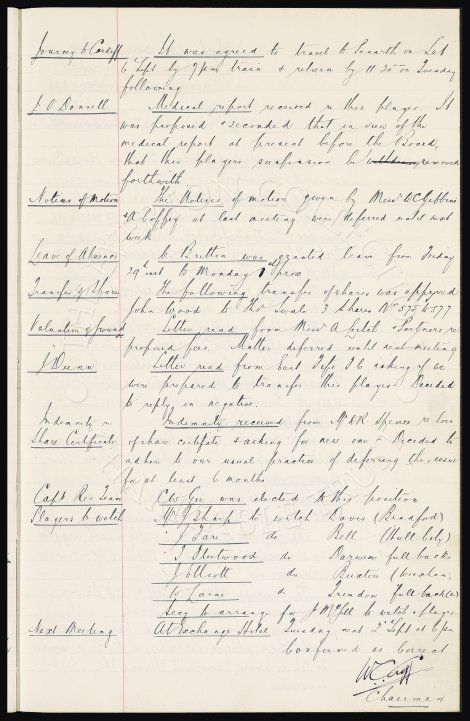 Journey to Cardiff It was agreed to travel to Penarth on Sat
6th Sept by 7pm train & return by 11.20 on Tuesday
following
J O'Donnell Medical report received re this player. It
was proposed & seconded that in view of the
medical report at present before the Board,
that this players suspension be withdrawn removed
forthwith
Notices of Motion The Notices of motion given by Messrs W C Gibbins
& A Coffey at last meeting were deferred until next
week
Leave of Absence C Britton was granted leave from Friday
29th inst to Monday 1st prox
Transfer of Shares The following transfer of shares was approved
John Wood to Thos 3 Shares Nos 575 to 577
Valuation of ground Letter read from Messrs & Partners re
proposed fees. Matter deferred until next meeting
J Dunn Letter read from East Fife F C asking if we
were prepared to transfer this player. Decided
to reply in negative.
Indemnity re Indemnity received from Mr A R Spence re loss
Share Certificate of share certificate & asking for new one - Decided to
adhere to our usual practice of deferring the issue
for at least 6 months
Capt Res Team C W Gee was elected to this position
Players to watch Mr J Sharp to watch Davis (Bradford)
" J Fare do Bell (Hull City)
" T Fleetwood do Darwen full backs
J Elliott do Buxton
W Laine do Frendon full back(s)
Secy to arrange for J McGill to watch a player
Next Meeting At Exchange Hotel Tuesday next 2nd Sept at 6pm
Confirmed as Correct
W C Cuff
Chairman